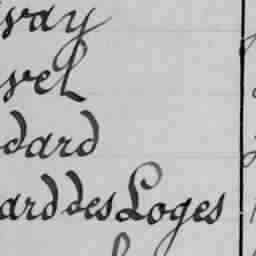 way
vel
dard
ard des Loges